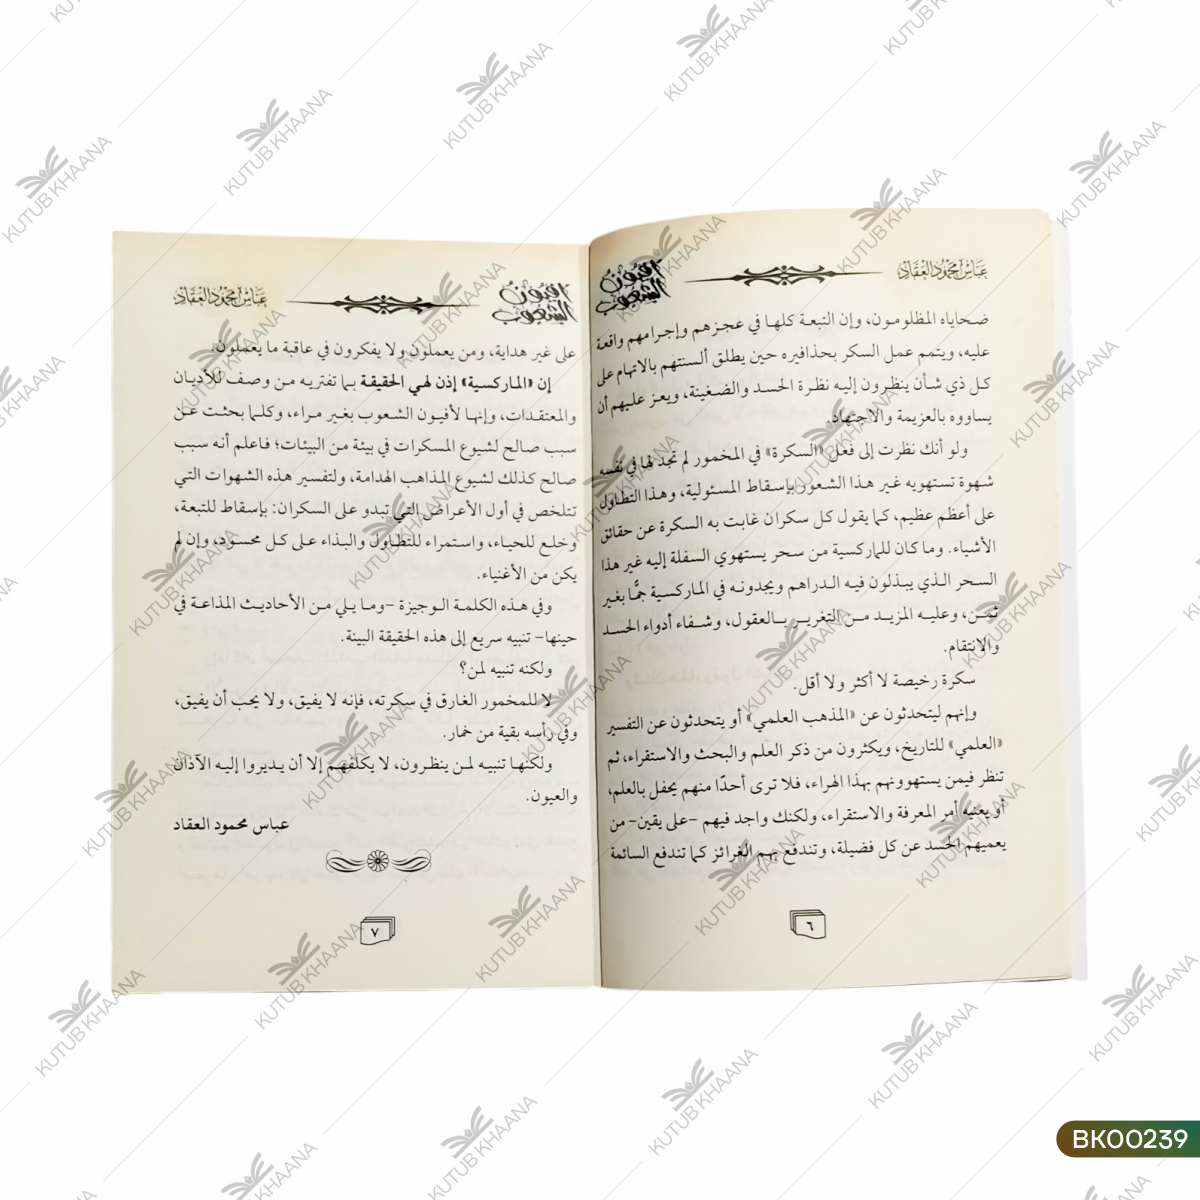 عباس محمود العقاد
أفيون الشعوب
ضحاياه المظلومون، وإن التبعة كلها في عجزهم وإجرامهم واقعة
عليه، ويتمم عمل السكر بحذافيره حين يطلق ألسنتهم بالاتهام على
كل ذي شأن ينظرون إليه نظرة الحسد والضغينة، ويعز عليهم أن
يساووه بالعزيمة والاجتهاد.
ولو أنك نظرت إلى فعل «السكرة» في المخمور لم تجد لها في نفسه
شهوة تستهويه غير هذا الشعور بإسقاط المسئولية، وهذا التطاول
على أعظم عظيم، كما يقول كل سكران غابت به السكرة عن حقائق
الأشياء. وما كان للماركسية من سحر يستهوي السفلة إليه غير هذا
السحر الذي يبذلون فيه الدراهم ويجدونه في الماركسية جمًّا بغير
ثمن، وعليه المزيد من التغرير بالعقول، وشفاء أدواء الحسد
والانتقام.
سكرة رخيصة لا أكثر ولا أقل.
وإنهم ليتحدثون عن «المذهب العلمي» أو يتحدثون عن التفسير
«العلمي» للتاريخ، ويكثرون من ذكر العلم والبحث والاستقراء، ثم
تنظر فيمن يستهوونهم بهذا الهراء، فلا ترى أحدًا منهم يحفل بالعلم،
أو يعنيه أمر المعرفة والاستقراء، ولكنك واجد فيهم -على يقين- من
يعميهم الحسد عن كل فضيلة، وتندفع بهم الغرائز كما تندفع السائمة
٦
أفيون الشعوب
عباس محمود العقاد
على غير هداية، ومن يعملون ولا يفكرون في عاقبة ما يعملون.
إن «الماركسية» إذن لهي الحقيقة بما تفتريه من وصف للأديان
والمعتقدات، وإنها لأفيون الشعوب بغير مراء، وكلما بحثت عن
سبب صالح لشيوع المسكرات في بيئة من البيئات؛ فاعلم أنه سبب
صالح كذلك لشيوع المذاهب الهدامة، ولتفسير هذه الشهوات التي
تتلخص في أول الأعراض التي تبدو على السكران: بإسقاط للتبعة،
وخلع للحياء، واستمراء للتطاول والبذاء على كل محسود، وإن لم
يكن من الأغنياء.
وفي هذه الكلمة الوجيزة -وما يلي من الأحاديث المذاعة في
حينها- تنبيه سريع إلى هذه الحقيقة البينة.
ولكنه تنبيه لمن؟
لا للمخمور الغارق في سكرته، فإنه لا يفيق، ولا يحب أن يفيق،
وفي رأسه بقية من خمار.
ولكنها تنبيه لمن ينظرون، لا يكلفهم إلا أن يديروا إليه الآذان
والعيون.
عباس محمود العقاد
٧
KUTUB KHAANA
BK00239